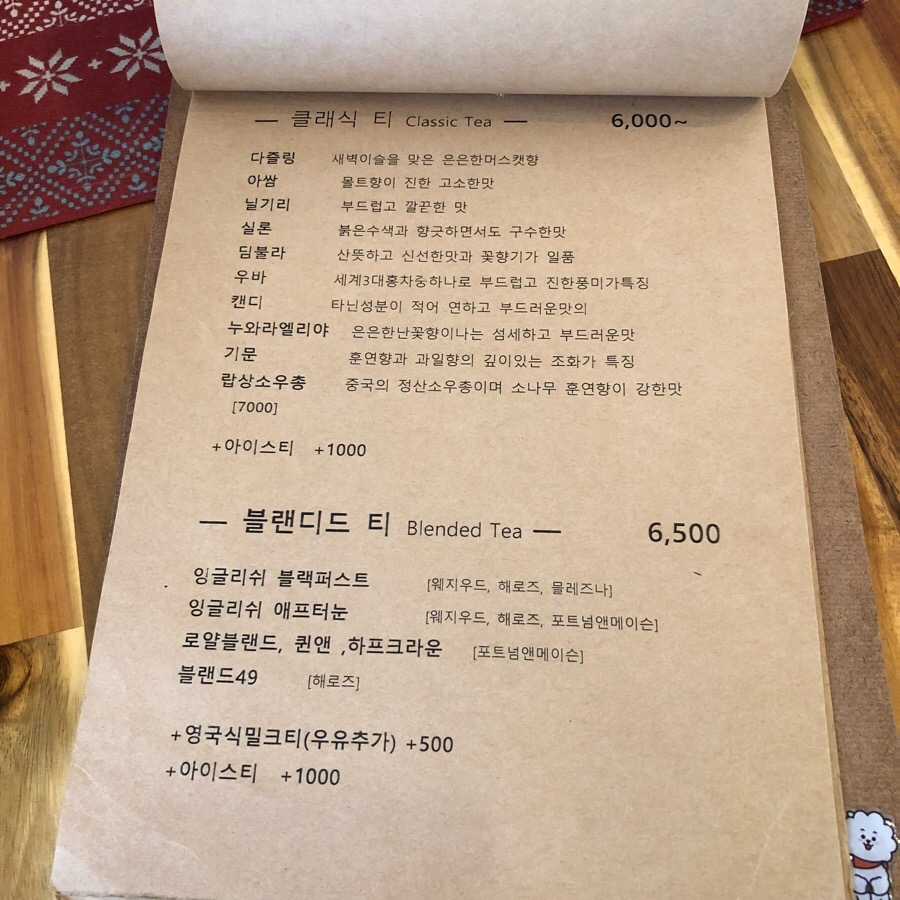 — 클래식 티 Classic Tea — 6,000~
다즐링 새벽이슬을 맞은 은은한머스캣향
아쌈 몰트향이 진한 고소한맛
닐기리 부드럽고 깔끋한 맛
실론 붉은수색과 향긋하면서도 구수한맛
딤불라 산뜻하고 신선한맛과 꽃향기가 일품
우바 세계3대홍차중하나로 부드럽고 진한풍미가특징
캔디 타닌성분이 적어 연하고 부드러운맛의
누와라엘리야 은은한난꽃향이나는 섬세하고 부드러운맛
기문 훈연향과 과일향의 깊이있는 조화가 특징
랍상소우총 중국의 정산소우총이며 소나무 훈연향이 강한맛
[7000]
+아이스티 +1000
— 블랜디드 티 Blended Tea — 6,500
잉글리쉬 블랙퍼스트 [웨지우드, 해로즈, 믈레즈나]
잉글리쉬 애프터눈 [웨지우드, 해로즈, 포트넘앤메이슨]
로얄블랜드, 퀸앤 ,하프크라운 [포트넘앤메이슨]
블랜드49 [해로즈]
+영국식밀크티(우유추가) +500
+아이스티 +1000